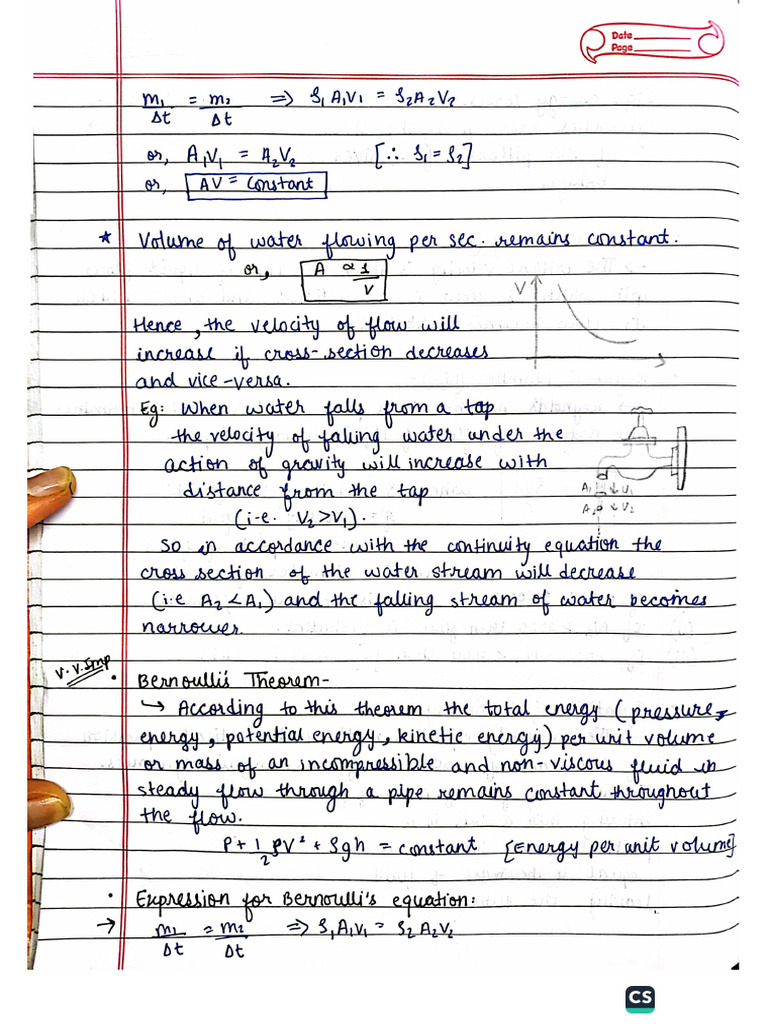 Date
Page
m₁/Δt = m₂/Δt ⇒ ρ₁A₁V₁ = ρ₂A₂V₂
or, A₁V₁ = A₂V₂ [∴ ρ₁ = ρ₂]
or, AV = Constant
* Volume of water flowing per sec. remains constant.
or, A ∝ 1/V
V
Hence, the velocity of flow will
increase if cross-section decreases
and vice-versa.
Eg: When water falls from a tap
the velocity of falling water under the
action of gravity will increase with
distance from the tap
(i-e. V₂>V₁).
A₁ ↓V₁
A₂ ↓V₂
So in accordance with the continuity equation the
cross section of the water stream will decrease
(i.e A₂<A₁) and the falling stream of water becomes
narrower.
V.V.Imp • Bernoulli's Theorem-
↳ According to this theorem the total energy (pressure,
energy, potential energy, kinetic energy) per unit volume
or mass of an incompressible and non-viscous fluid in
steady flow through a pipe remains constant throughout
the flow.
P + 1/2 ρV² + ρgh = constant [Energy per unit volume]
• Expression for Bernoulli's equation:
→ m₁/Δt = m₂/Δt ⇒ ρ₁A₁V₁ = ρ₂A₂V₂
CS